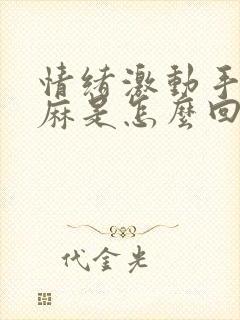 情緒激動手
麻是怎麼回
代金光